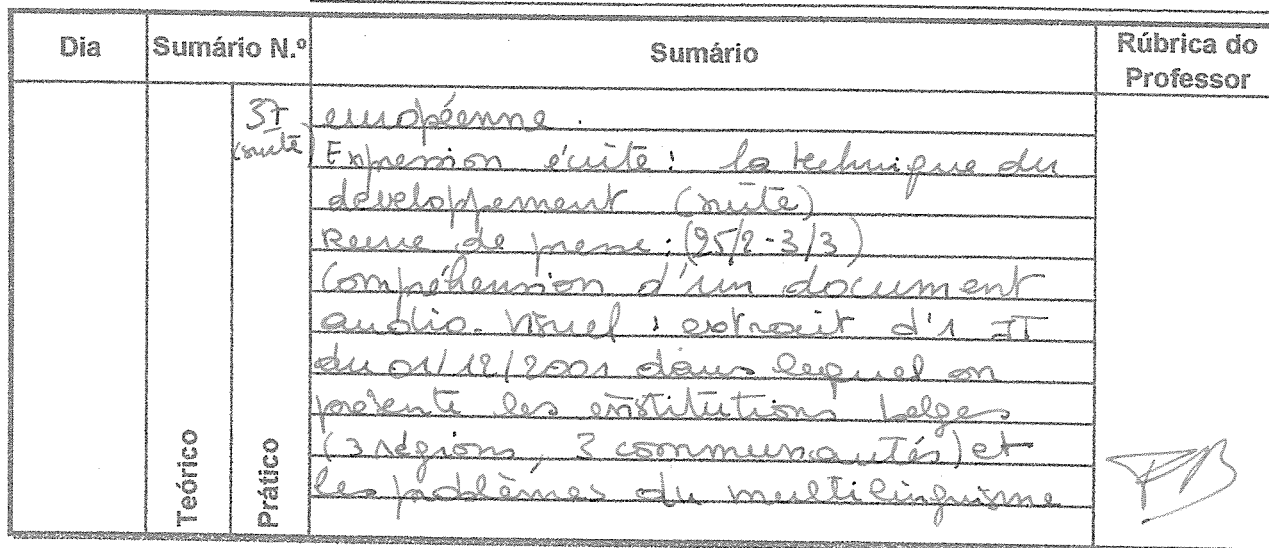 Dia Sumário N.º Sumário Rúbrica do Professor
37 européenne.
(suite) Expression écrite : la technique du
développement (suite)
Revue de presse : (25/2-3/3)
Compréhension d'un document
audio-visuel : extrait d'1 JT
du 01/12/2001 dans lequel on
présente les institutions belges
(3 régions, 3 communautés) et
les problèmes du multilinguisme
Teórico Prático